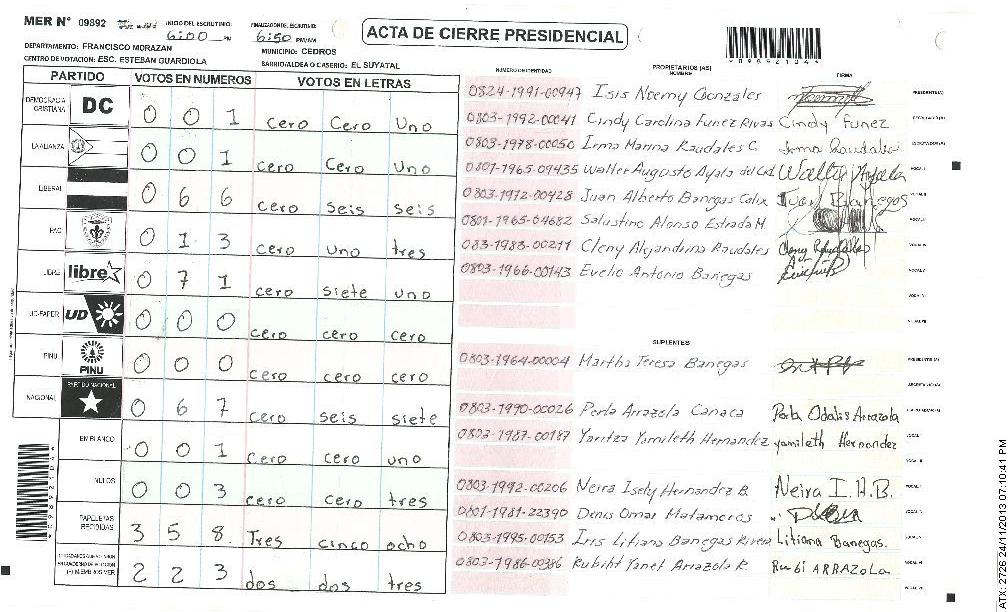 MER N° 09892
INICIO DEL ESCRUTINIO:
6:00 PM
FINALIZACION DEL ESCRUTINIO:
6:50 PM/AM
ACTA DE CIERRE PRESIDENCIAL
DEPARTAMENTO: FRANCISCO MORAZAN
MUNICIPIO: CEDROS
CENTRO DE VOTACION: ESC. ESTEBAN GUARDIOLA
BARRIO/ALDEA O CASERIO: EL SUYATAL
PARTIDO VOTOS EN NUMEROS VOTOS EN LETRAS
DEMOCRACIA CRISTIANA DC 0 0 1 cero Cero Uno
LA ALIANZA 0 0 1 cero Cero Uno
LIBERAL 0 6 6 cero Seis seis
PAC 0 1 3 cero uno tres
LIBRE libre 0 7 1 cero siete uno
UD-FAPER UD 0 0 0 cero cero cero
PINU PINU 0 0 0 cero cero cero
NACIONAL PARTIDO NACIONAL 0 6 7 cero seis siete
EN BLANCO 0 0 1 cero cero uno
NULOS 0 0 3 cero cero tres
PAPELETAS RECIBIDAS 3 5 8 Tres cinco ocho
(+) MIEMBROS MER 2 2 3 dos dos tres
NUMERO DE IDENTIDAD PROPIETARIOS (AS) NOMBRE FIRMA
0824-1991-00947 Isis Noemy Gonzales PRESIDENTE(A)
0803-1992-00041 Cindy Carolina Funez Rivas Cindy Funez SECRETARIO(A)
0803-1978-00050 Irma Marina Raudales C Irma Raudales ESCRUTADOR(A)
0801-1965-09435 Walter Augusto Ayala del Cid Walter Ayala VOCAL I
0803-1972-00428 Juan Alberto Banegas Calix Juan Banegas VOCAL II
0801-1965-04682 Salustino Alonso Estrada M. VOCAL III
083-1983-00211 Cleny Alejandrina Raudales Cleny Raudales VOCAL IV
0803-1966-00143 Evelio Antonio Banegas VOCAL V
VOCAL VI
VOCAL VII
SUPLENTES
0803-1964-00004 Martha Teresa Banegas PRESIDENTE (A)
SECRETARIO (A)
0803-1990-00026 Perla Arrazola Canaca Perla Odalis Arrazola ESCRUTADOR(A)
0803-1987-00187 Yaritza Yamileth Hernandez yamileth Hernandez VOCAL I
0803-1992-00206 Neira Isely Hernandez B. Neira I.H.B. VOCAL II
0801-1981-22390 Denis Omar Matamoros
0803-1995-00153 Iris Litiana Banegas Rivera Litiana Banegas.
0803-1986-00386 Rubiht Yanet Arrazola R. Rubi ARRAZOLA VOCAL VI
VOCAL VII
ATX: 2726 24/11/2013 07:10:41 PM